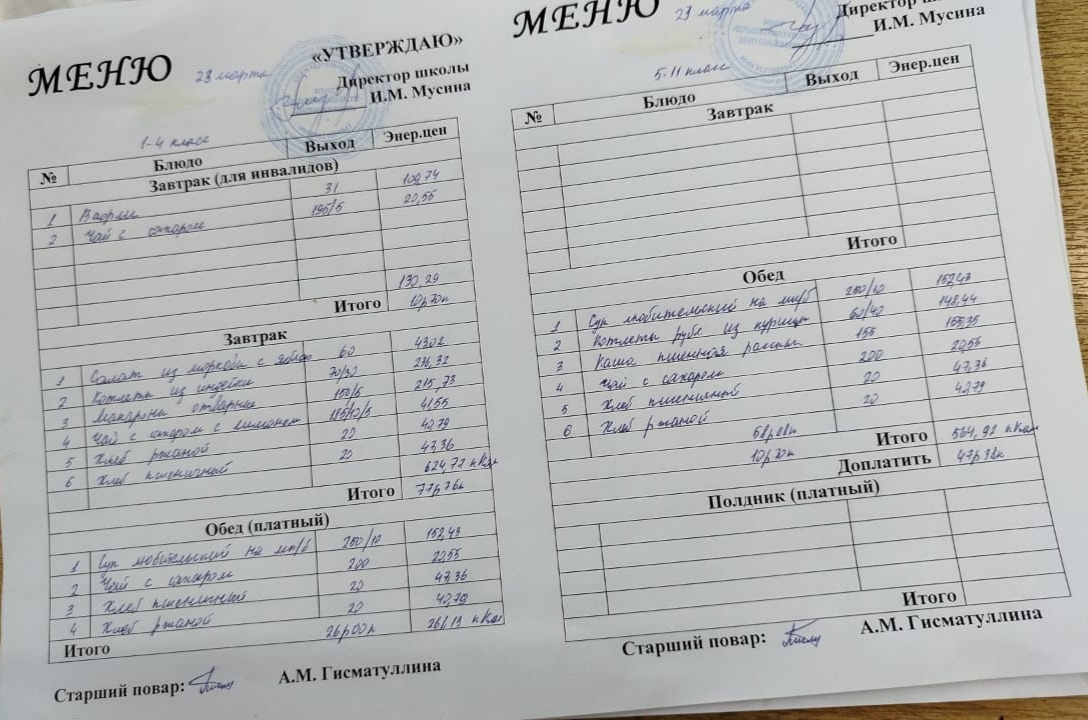 МЕНЮ 23 марта
«УТВЕРЖДАЮ»
Директор школы
И.М. Мусина
1-4 класс
№ Блюдо Выход Энер.цен
Завтрак (для инвалидов)
1 Вафли 31 109,74
2 Чай с сахаром 195/5 20,55
130,29
Итого 10р70к
Завтрак
1 Салат из моркови с 60 43,02
2 Котлета из индейки 70/30 236,32
3 Макароны отварные 150/5 215,73
4 Чай с сахаром с лимоном 41,55
5 Хлеб ржаной 20 40,79
6 Хлеб пшеничный 20 47,36
624,72 кКал
Итого 77р76к
Обед (платный)
1 Суп любительский на м/к/б 250/10 152,43
2 Чай с сахаром 200 20,55
3 Хлеб пшеничный 20 47,36
4 Хлеб ржаной 20 40,79
Итого 26р00к 261,13 кКал
Старший повар: А.М. Гисматуллина
МЕНЮ 23 марта
Директор
И.М. Мусина
5-11 класс
№ Блюдо Выход Энер.цен
Завтрак
Итого
Обед
1 Суп любительский на м/к/б 250/10 152,43
2 Котлеты рубл. из курицы 60/40 148,44
3 Каша пшенная рассып. 155 155,35
4 Чай с сахаром 200 20,55
5 Хлеб пшеничный 20 47,36
6 Хлеб ржаной 20 40,79
58р08к Итого 564,92 кКал
10р70к Доплатить 47р38к
Полдник (платный)
Итого
Старший повар: А.М. Гисматуллина